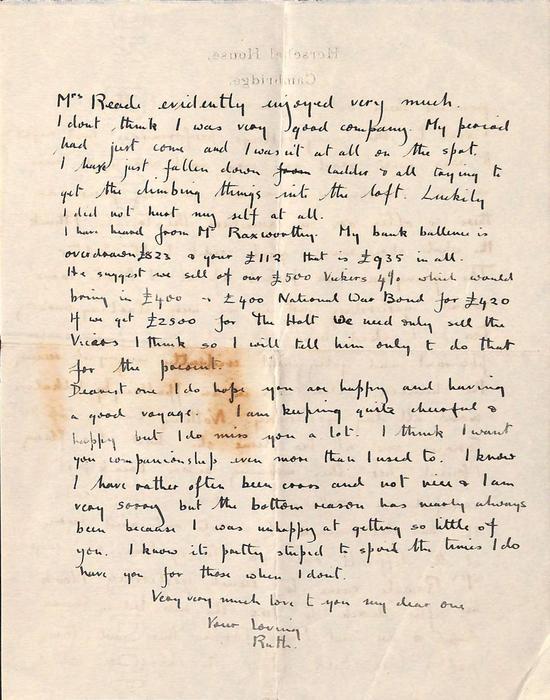 Herschel House,
Cambridge.
Mrs Reade evidently enjoyed very much.
I dont think I was very good company. My period
had just come and I wasnt at all on the spot.
I have just fallen down from ladder & all trying to
get the climbing things into the loft. Luckily
I did not hurt my self at all.
I have heard from Mr Raxworthy. My bank ballence is
overdrawn £823 & your £112 that is £935 in all.
He suggest we sell of our £500 Vickers 4% which would
bring in £400 & £400 National War Bond for £420
If we get £2500 for The Holt we need only sell the
Vicars I think so I will tell him only to do that
for the present.
Dearest one I do hope you are happy and having
a good voyage. I am keeping quite cheerful &
happy but I do miss you a lot. I think I want
you companionship even more than I used to. I know
I have rather often been cross and not nice & I am
very sorry but the bottom reason has nearly always
been because I was unhappy at getting so little of
you. I know its pretty stupid to spoil the times I do
have you for those when I dont.
Very very much love to you my dear one
Your Loving
Ruth.